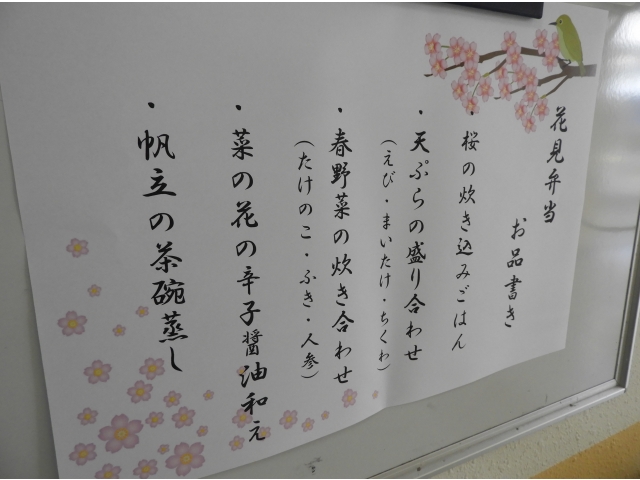 花見弁当
お品書き
・桜の炊き込みごはん
・天ぷらの盛り合わせ
（えび・まいたけ・ちくわ）
・春野菜の炊き合わせ
（たけのこ・ふき・人参）
・菜の花の辛子醤油和え
・帆立の茶碗蒸し